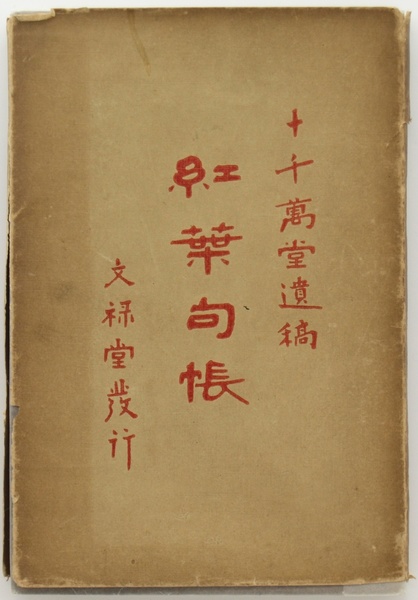 十千萬堂遺稿
紅葉句帳
文祿堂發行